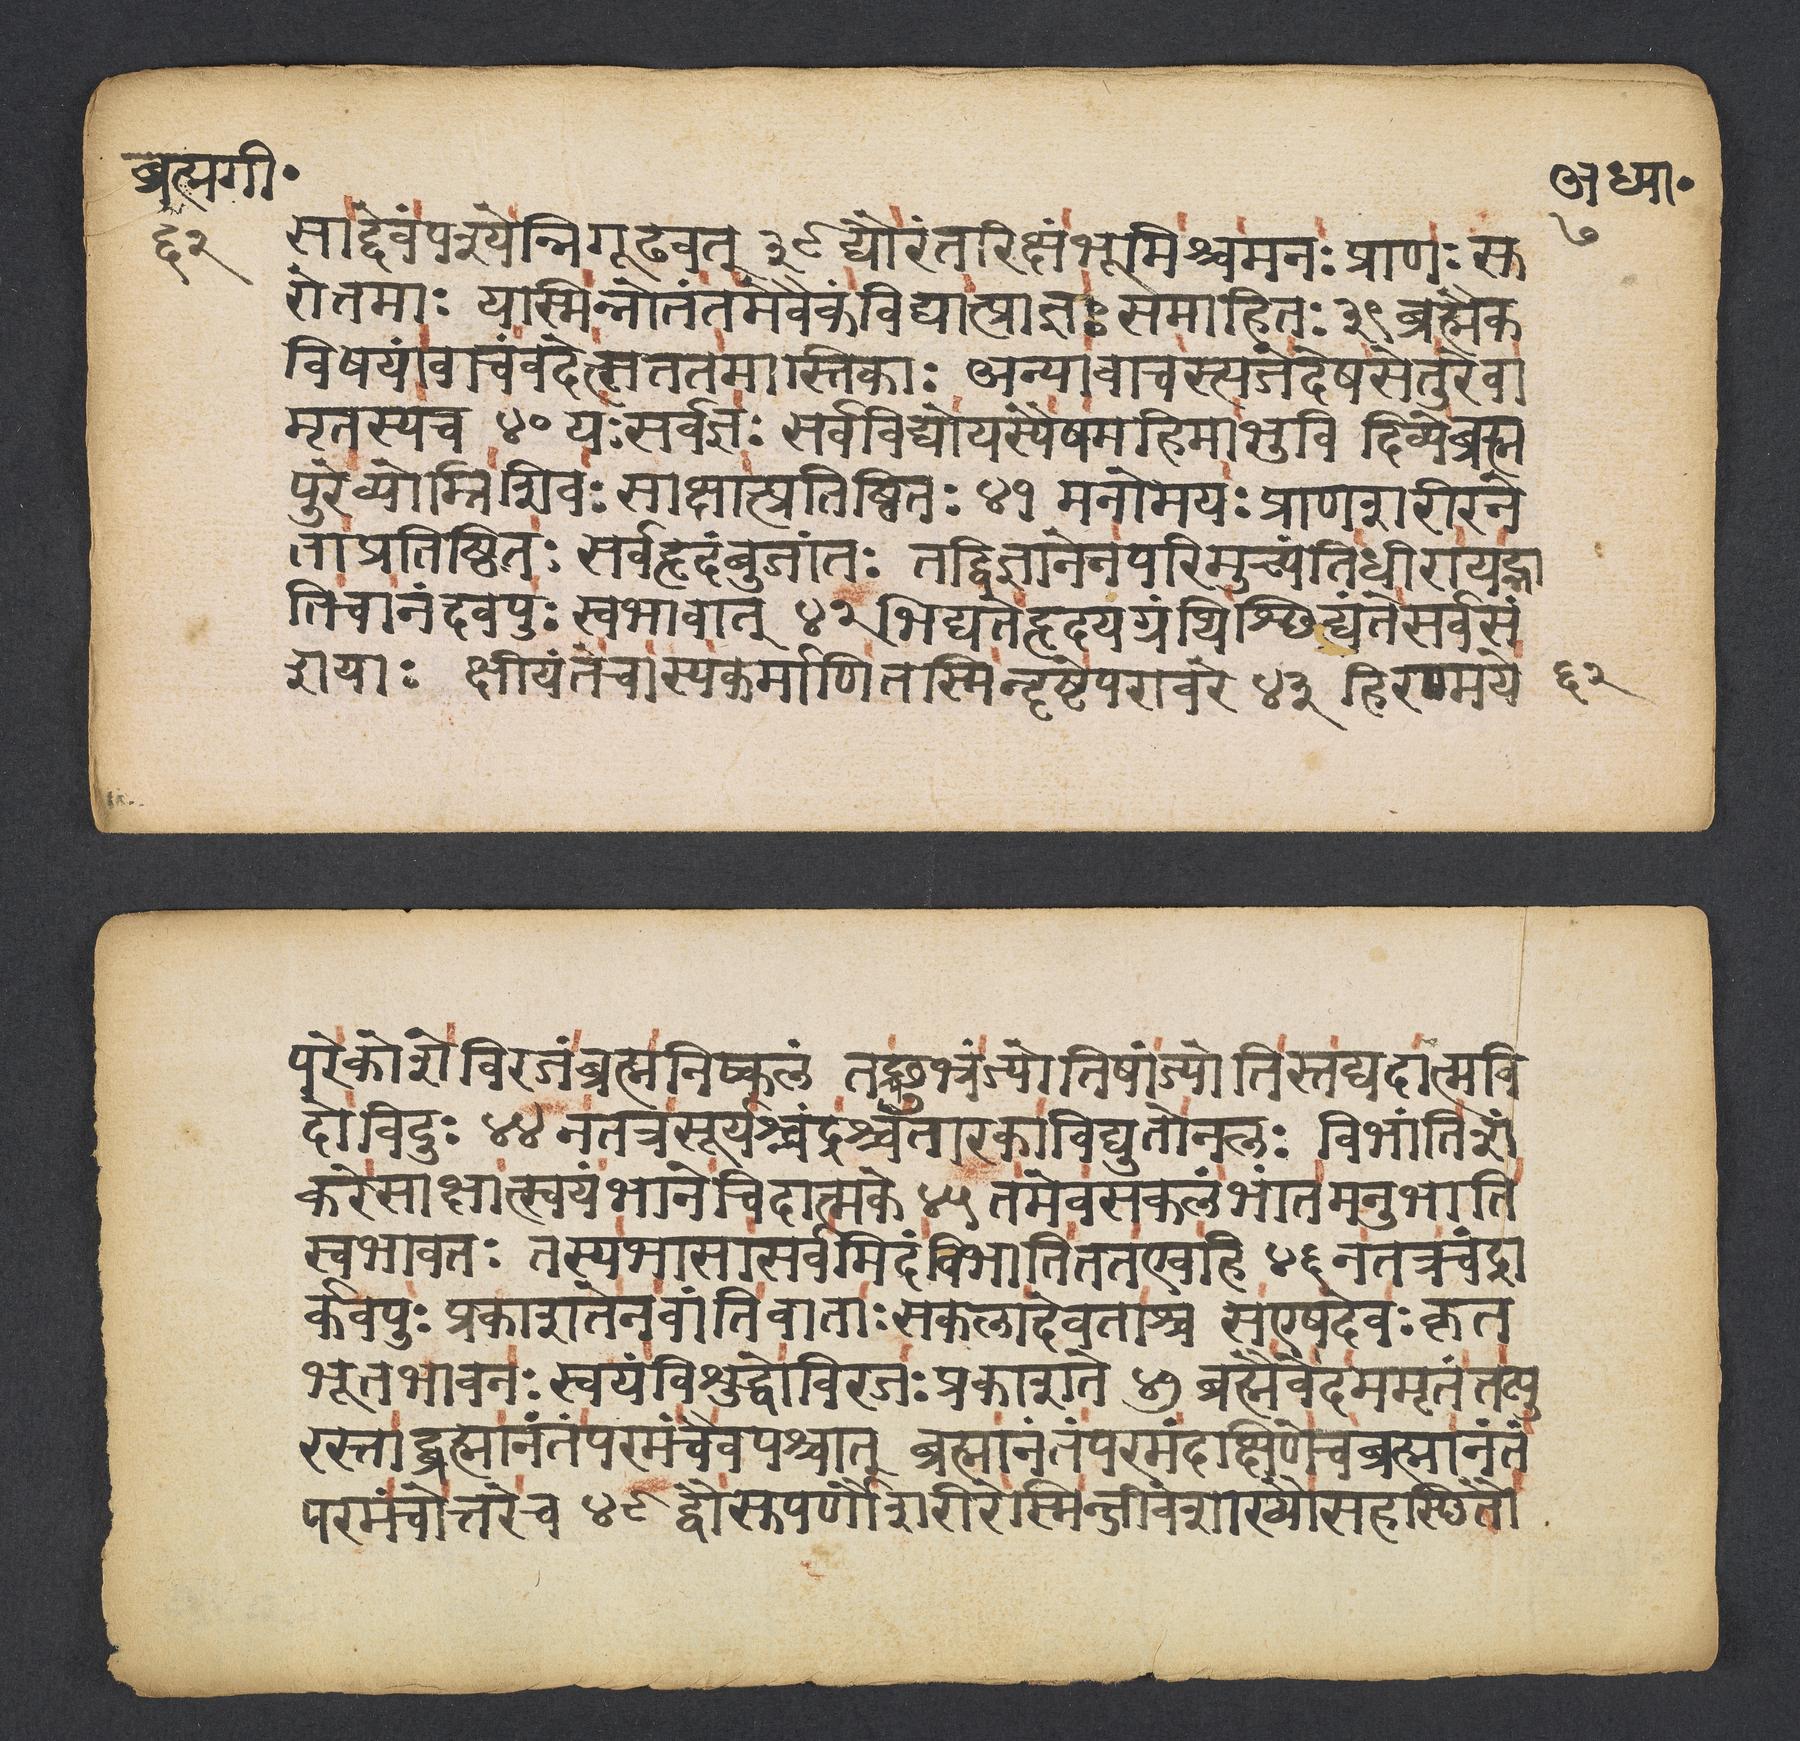 ब्रह्मगी॰
अध्या॰
६२
७
साद्देवंपश्येन्निगूढवत् ३८ द्यौरंतरिक्षंभूमिश्चमनः प्राणः स
रोतमाः यास्मिन्नोतंतमेवैकंविद्यात्प्राज्ञः समाहितः ३९ ब्रह्मैक
विषयांवाचंवदेत्सततमास्तिकाः अन्यावाचस्त्यजेदेषसेतुरेवा
मृतस्यच ४० यःसर्वज्ञः सर्वविद्योयस्यैषमहिमाभुवि दिव्येब्रह्म
पुरेव्योम्निशिवः साक्षात्प्रतिष्ठितः ४१ मनोमयः प्राणशरीरने
ताप्रतिष्ठितः सर्वहृदंबुजांतः तद्विज्ञानेनपरिमुच्यंतिधीरायद्भा
तिचानंदवपुः स्वभावात् ४२ भिद्यतेहृदयग्रंथिश्छिद्यंतेसर्वसं
शयाः क्षीयंतेचास्यकर्माणितस्मिन्दृष्टेपरावरे ४३ हिरण्मये
६२
परेकोशेविरजंब्रह्मनिष्कलं तच्छुभ्रंज्योतिषांज्योतिस्तद्यदात्मवि
दोविदुः ४४ नतत्रसूर्यश्चंद्रश्चतारकाविद्युतोनलः विभांतिशं
करेसाक्षात्स्वयंभानेचिदात्मके ४५ तमेवसकलंभांतमनुभाति
स्वभावतः तस्यभासासर्वमिदंविभातिततएवहि ४६ नतत्रचंद्रा
र्कवपुः प्रकाशतेनवांतिवाताःसकलादेवताश्च सएषदेवः कृत
भूतभावनः स्वयंविशुद्धोविरजः प्रकाशते ४७ ब्रह्मैवेदममृतंतत्पु
रस्ताद्ब्रह्मानंतंपरमंचैवपश्चात् ब्रह्मानंतंपरमंदक्षिणेचब्रह्मानंतं
परमंचोत्तरेच ४८ द्वौसुपर्णौशरीरेस्मिन्जीवेशाख्यौसहस्थितौ